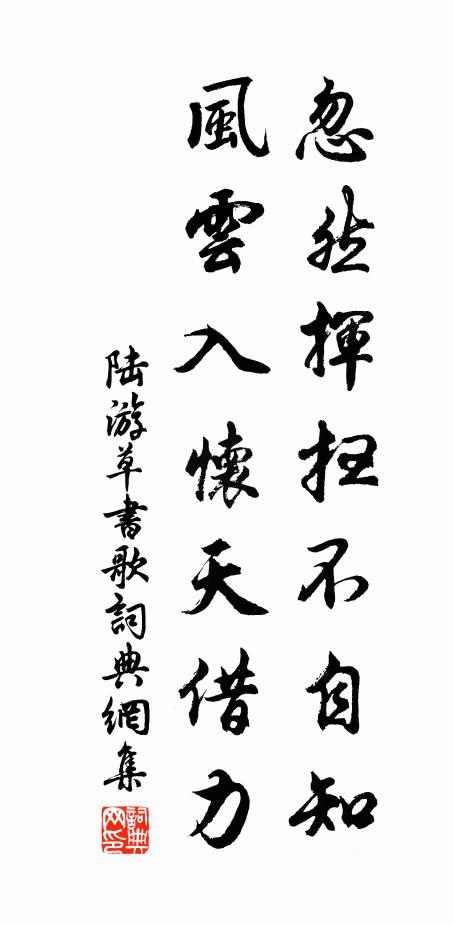 忽然揮扫不自知
風雲入懷天借力
陆游草書歌詞典網集
詞典网印